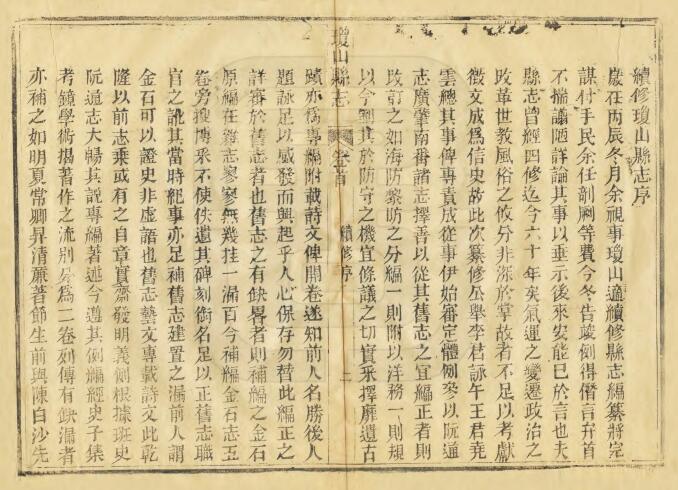 續修瓊山縣志序
歲在丙辰冬月余視事瓊山適續修縣志編纂將完
謀付手民余任剞劂等費今冬告竣例得僭言弁首
不揣譾陋詳論其事以垂示後來安能已於言也夫
縣志曾經四修迄今六十年矣氣運之變遷政治之
改革世教風俗之攸分非深於掌故者不足以考獻
徵文成爲信史故此次纂修公舉李君詠午王君堯
雲總其事俾專責成從事伊始審定體例參以阮通
志廣肇南番諸志擇善以從其舊志之宜編正者則
改訂之如海防黎防之分編一則附以洋務一則規
以今制其於防守之機宜條議之切實釆擇靡遺古
瓊山縣志
卷首
續修序
一
蹟亦爲專編附載詩文俾開卷遂知前人名勝後人
題詠足以感發而興起乎人心保存勿替此編正之
詳審於舊志者也舊志之有缺畧者則補編之金石
原編在雜志寥寥無幾挂一漏百今補編金石志五
卷旁搜博釆不使佚遺其碑刻銜名足以正舊志職
官之訛其當時紀事亦足補舊志建置之漏前人謂
金石可以證史非虛語也舊志藝文專載詩文此乾
隆以前志乘或有之自章實齋發明義例根據班史
阮通志大暢其說專編著述今遵其例編經史子集
考鏡學術揭著作之流別另爲二卷列傳有缺漏者
亦補之如明夏常卿昇清廉著節生前與陳白沙先